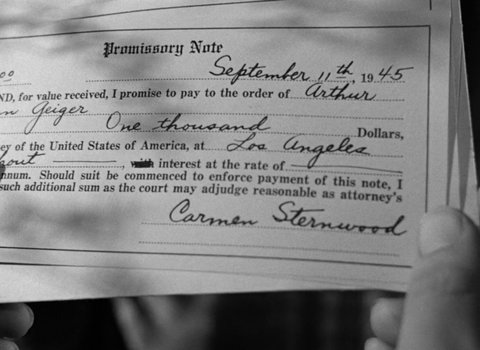 Promissory Note
00 September 11th, 1945
ND, for value received, I promise to pay to the order of Arthur
n Geiger
One thousand Dollars,
ey of the United States of America, at Los Angeles
hout, interest at the rate of
nnum. Should suit be commenced to enforce payment of this note, I
such additional sum as the court may adjudge reasonable as attorney's
Carmen Sternwood